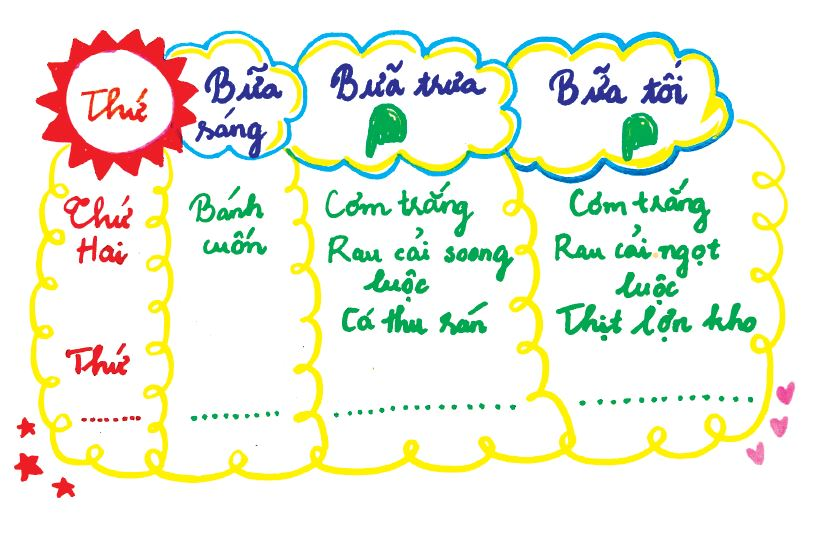 Thứ
Bữa sáng
Bữa trưa
Bữa tối
Thứ Hai
Bánh cuốn
Cơm trắng
Rau cải soong luộc
Cá thu rán
Cơm trắng
Rau cải ngọt luộc
Thịt lợn kho
Thứ
................
................
................
................